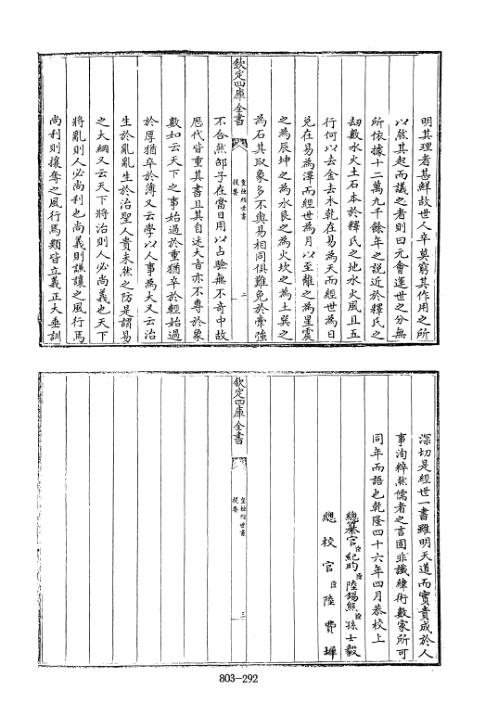 明其理者甚鮮故世人卒莫窮其作用之所
以然其起而議之者則曰元會運世之分無
所依據十二萬九千餘年之說近於釋氏之
刼數水火土石本於釋氏之地水火風且五
行何以去金去木乾在易為天而經世為日
兌在易為澤而經世為月以至離之為星震
之為辰坤之為水艮之為火坎之為土巽之
為石其取象多不與易相同俱難免於牽強
欽定四庫全書
皇極經世書
提要
二
不合然邵子在當日用以占驗無不奇中故
歴代皆重其書且其自述大㫖亦不專於象
數如云天下之事始過於重猶卒於輕始過
於厚猶卒於薄又云學以人事為大又云治
生於亂亂生於治聖人貴未然之防是謂易
之大綱又云天下將治則人必尚義也天下
將亂則人必尚利也尚義則謙讓之風行焉
尚利則攘奪之風行焉類皆立義正大垂訓
深切是經世一書雖明天道而實責成於人
事洵粹然儒者之言固非讖緯術數家所可
同年而語也乾隆四十六年四月恭校上
總纂官臣紀昀臣陸錫熊臣孫士毅
總校官臣陸費墀
欽定四庫全書
皇極經世書
提要
三
803-292